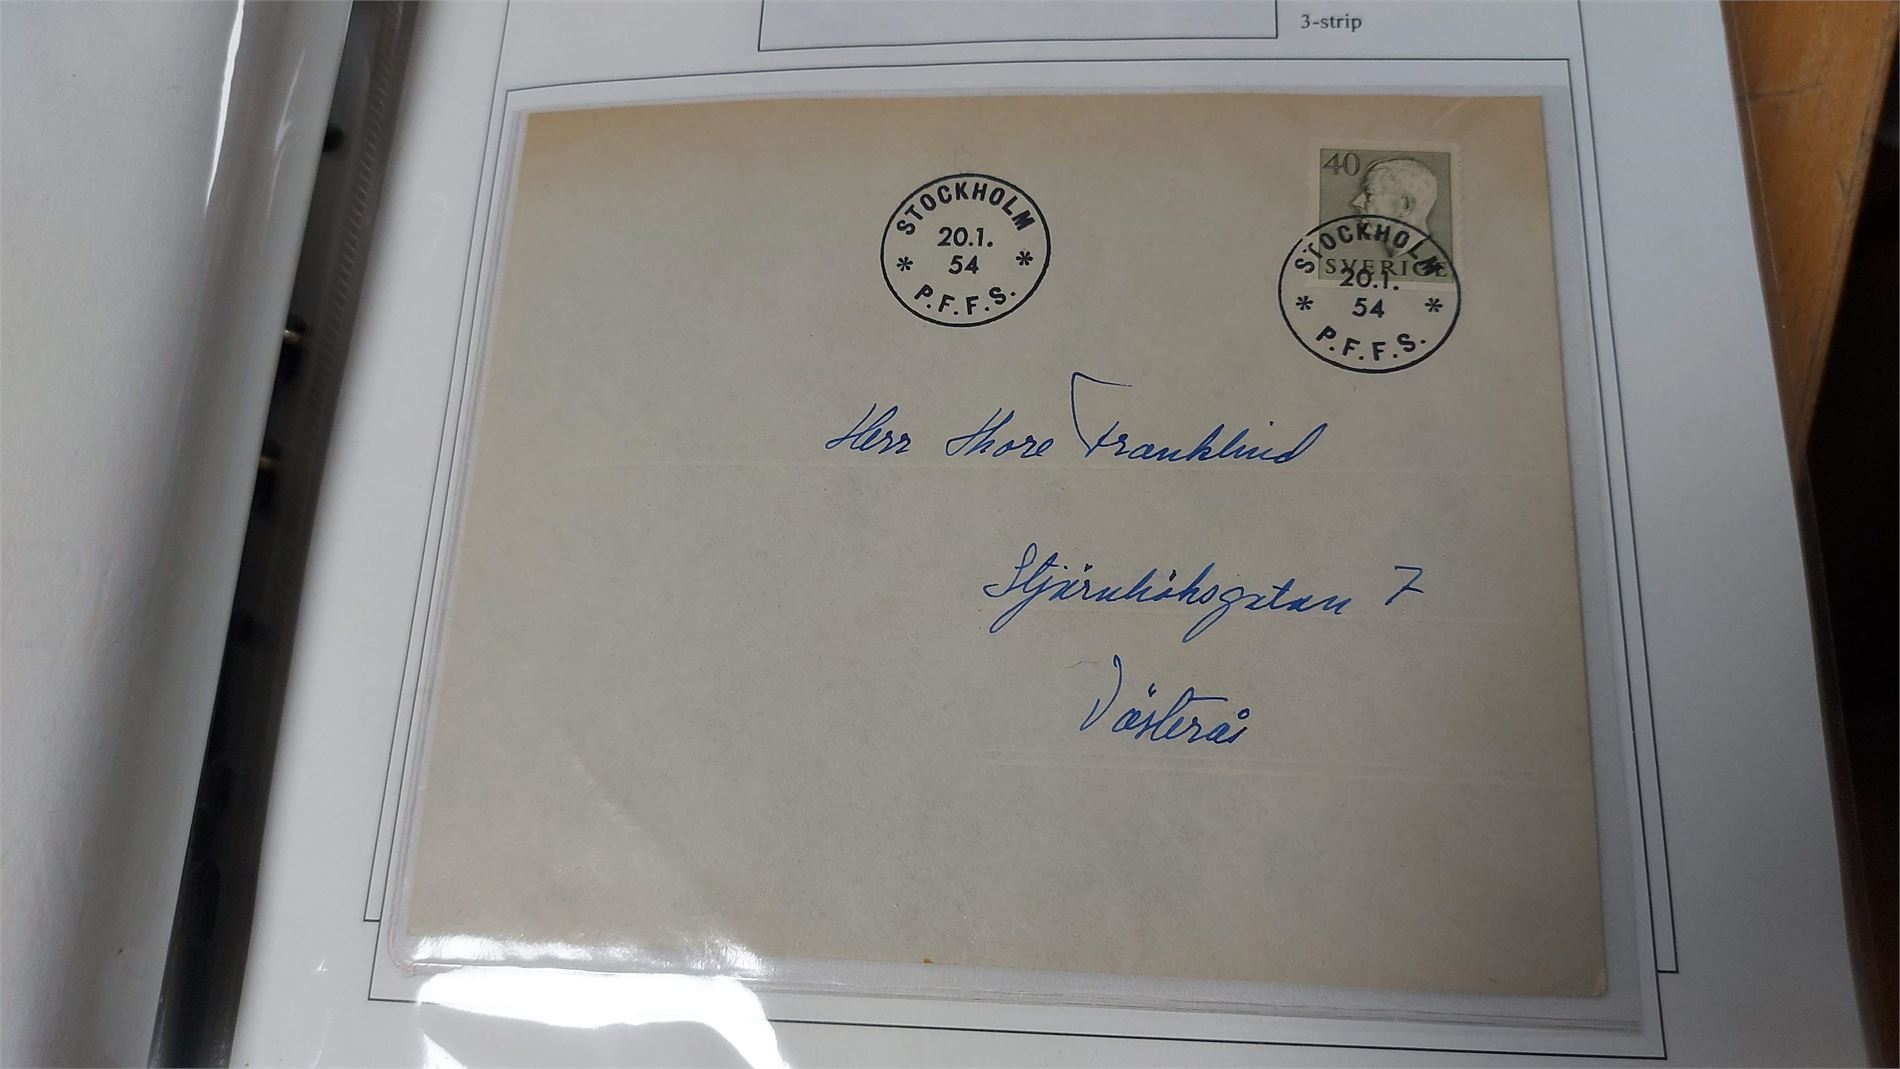 3-strip
40
SVERIGE
STOCKHOLM
20.1.
54
* *
P.F.F.S.
STOCKHOLM
20.1.
54
* *
P.F.F.S.
Herr Thore Franklind
Stjärnhöksgatan 7
Västerås